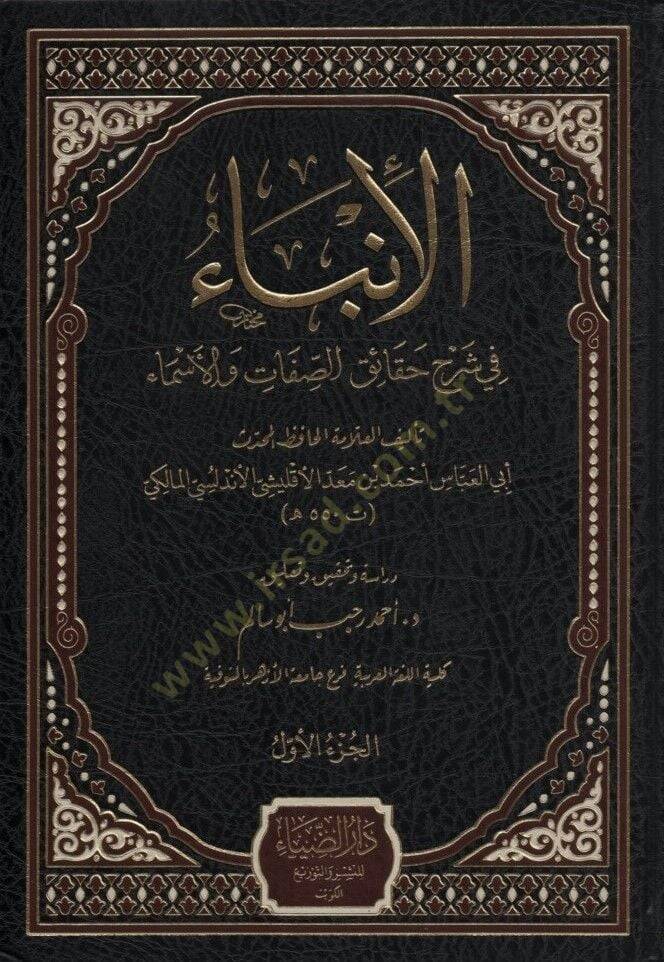 الأنباء
في شرح حقائق الصفات والأسماء
تأليف العلامة الحافظ المحدث
أبي العباس أحمد بن معد الأقليشي الأندلسي المالكي
(ت ٥٥٠ هـ)
دراسة وتحقيق وتعليق
د. أحمد رجب أبو سالم
كلية اللغة العربية فرع جامعة الأزهر بالمنوفية
الجزء الأول
دار الضياء
للنشر والتوزيع
الكويت
www.irsad.com.tr